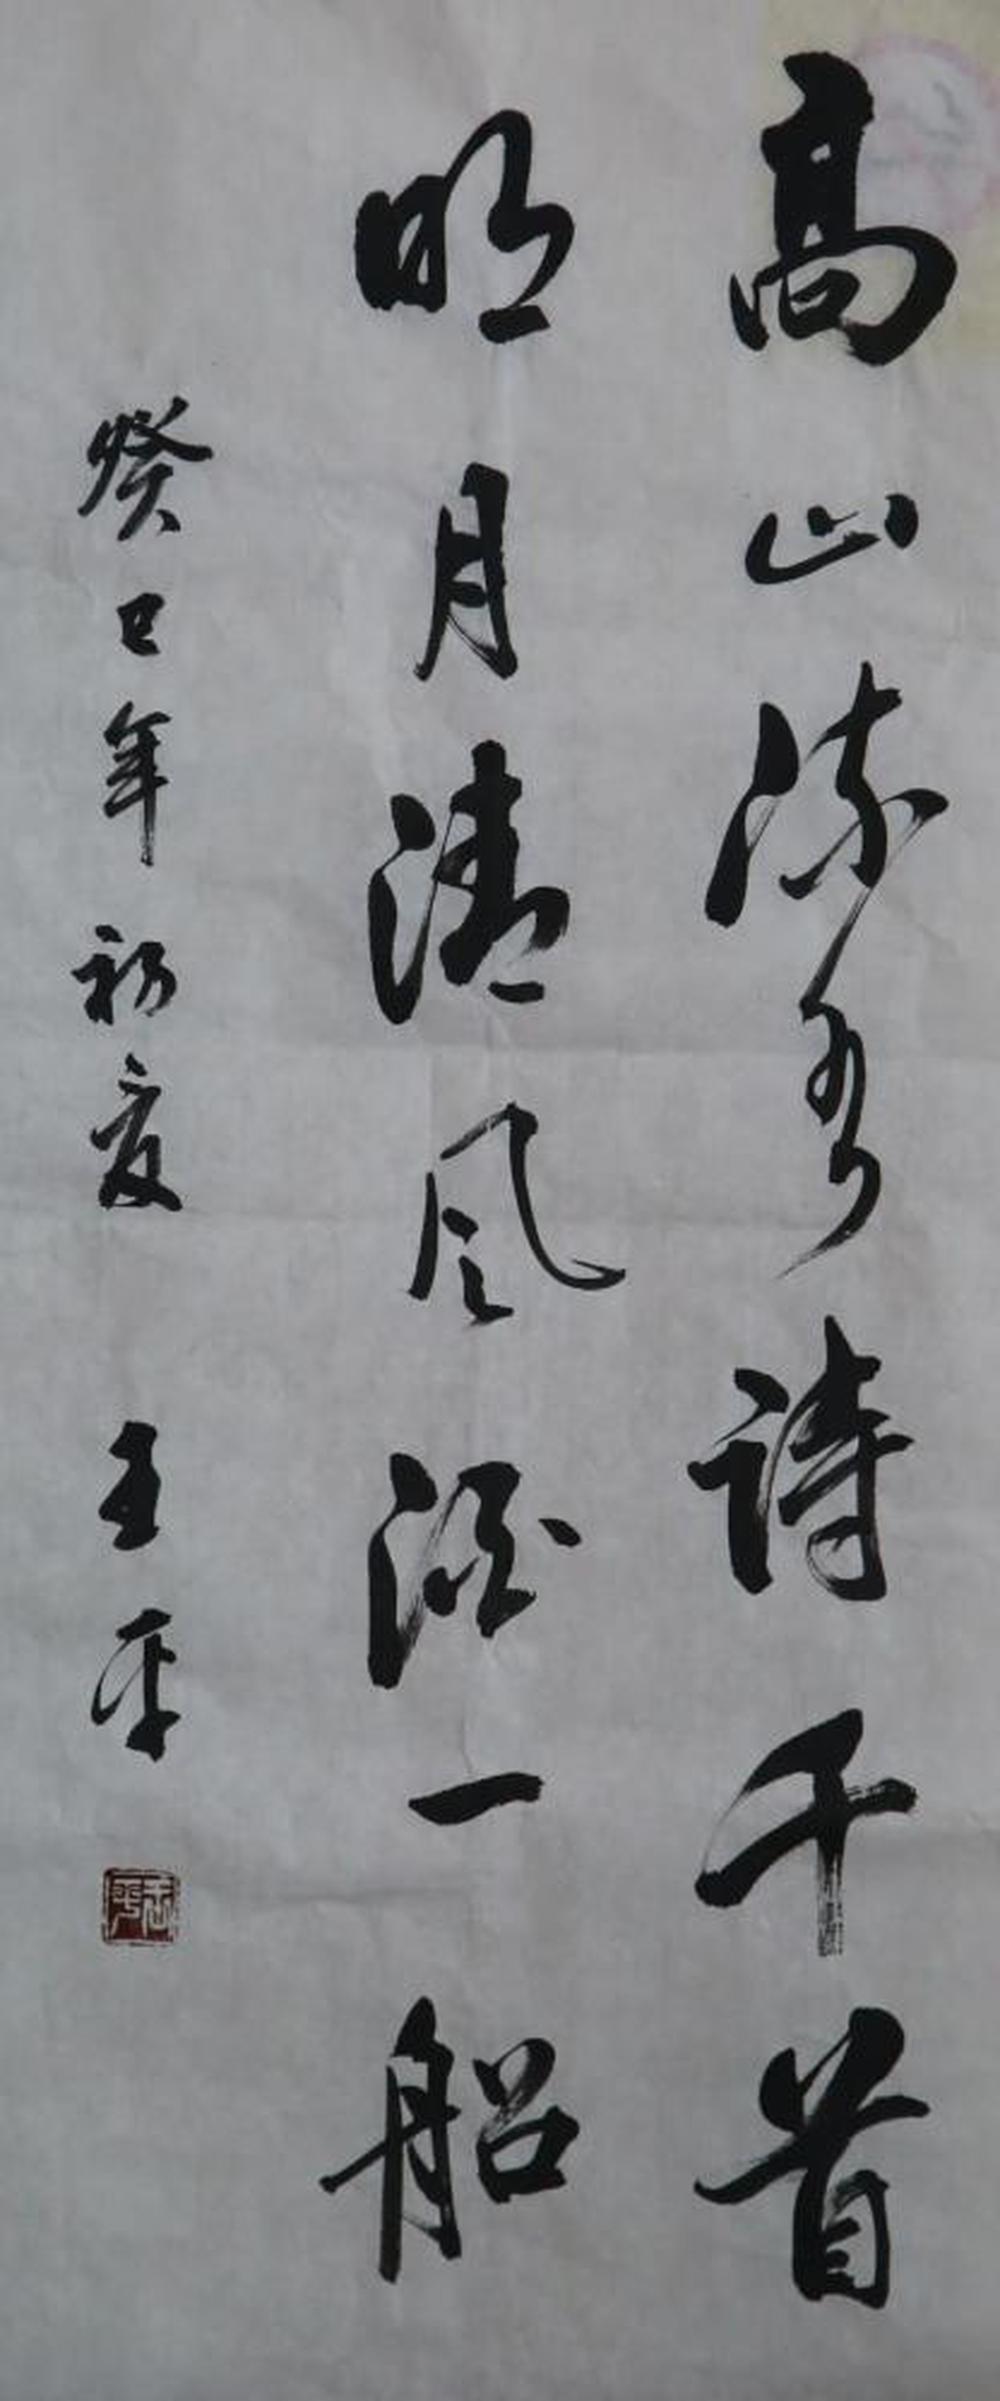 高山流水詩千首
明月清風酒一船
癸巳年初夏 王平